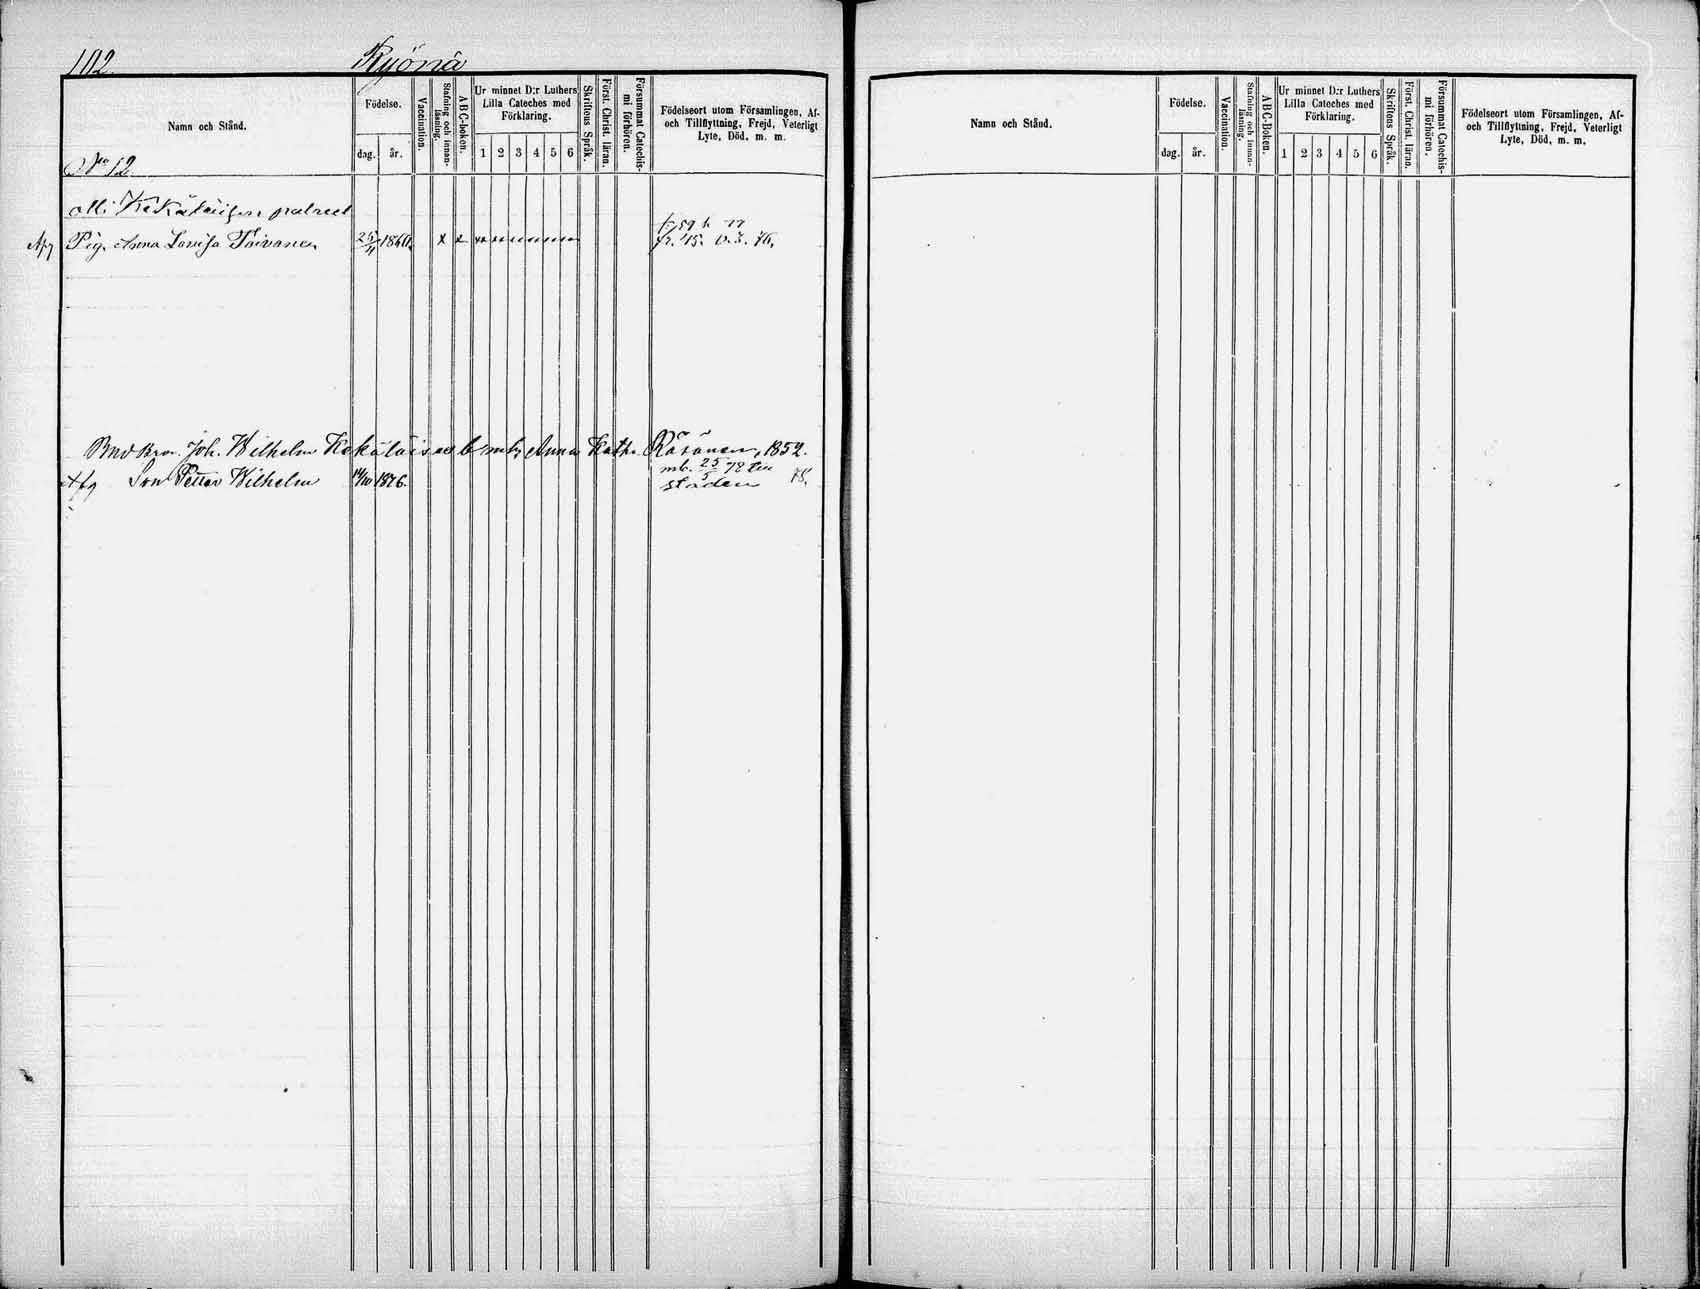 102. Ryönä
Namn och Stånd.
Födelse.
dag. år.
Vaccination.
Stafning och innanläsning.
ABC-boken.
Ur minnet D:r Luthers Lilla Cateches med Förklaring.
1 2 3 4 5 6
Skriftens Språk.
Först. Christ. läran.
Försummat Catechismi förhören.
Födelseort utom Församlingen, Af- och Tillflyttning, Frejd, Veterligt Lyte, Död, m. m.
No 12
Olli Kekäläisen
Afg Pig. Anna Lovisa Toivanen 25/11 1860. x x
Joh. Wilhelm Kekäläisen b m h, Anna Kath. Räsänen, 1852.
mb. 25/5 78 till
Afg Son Petter Wilhelm 14/10 1876. staden 78.
Namn och Stånd.
Födelse.
dag. år.
Vaccination.
Stafning och innanläsning.
ABC-boken.
Ur minnet D:r Luthers Lilla Cateches med Förklaring.
1 2 3 4 5 6
Skriftens Språk.
Först. Christ. läran.
Försummat Catechismi förhören.
Födelseort utom Församlingen, Af- och Tillflyttning, Frejd, Veterligt Lyte, Död, m. m.